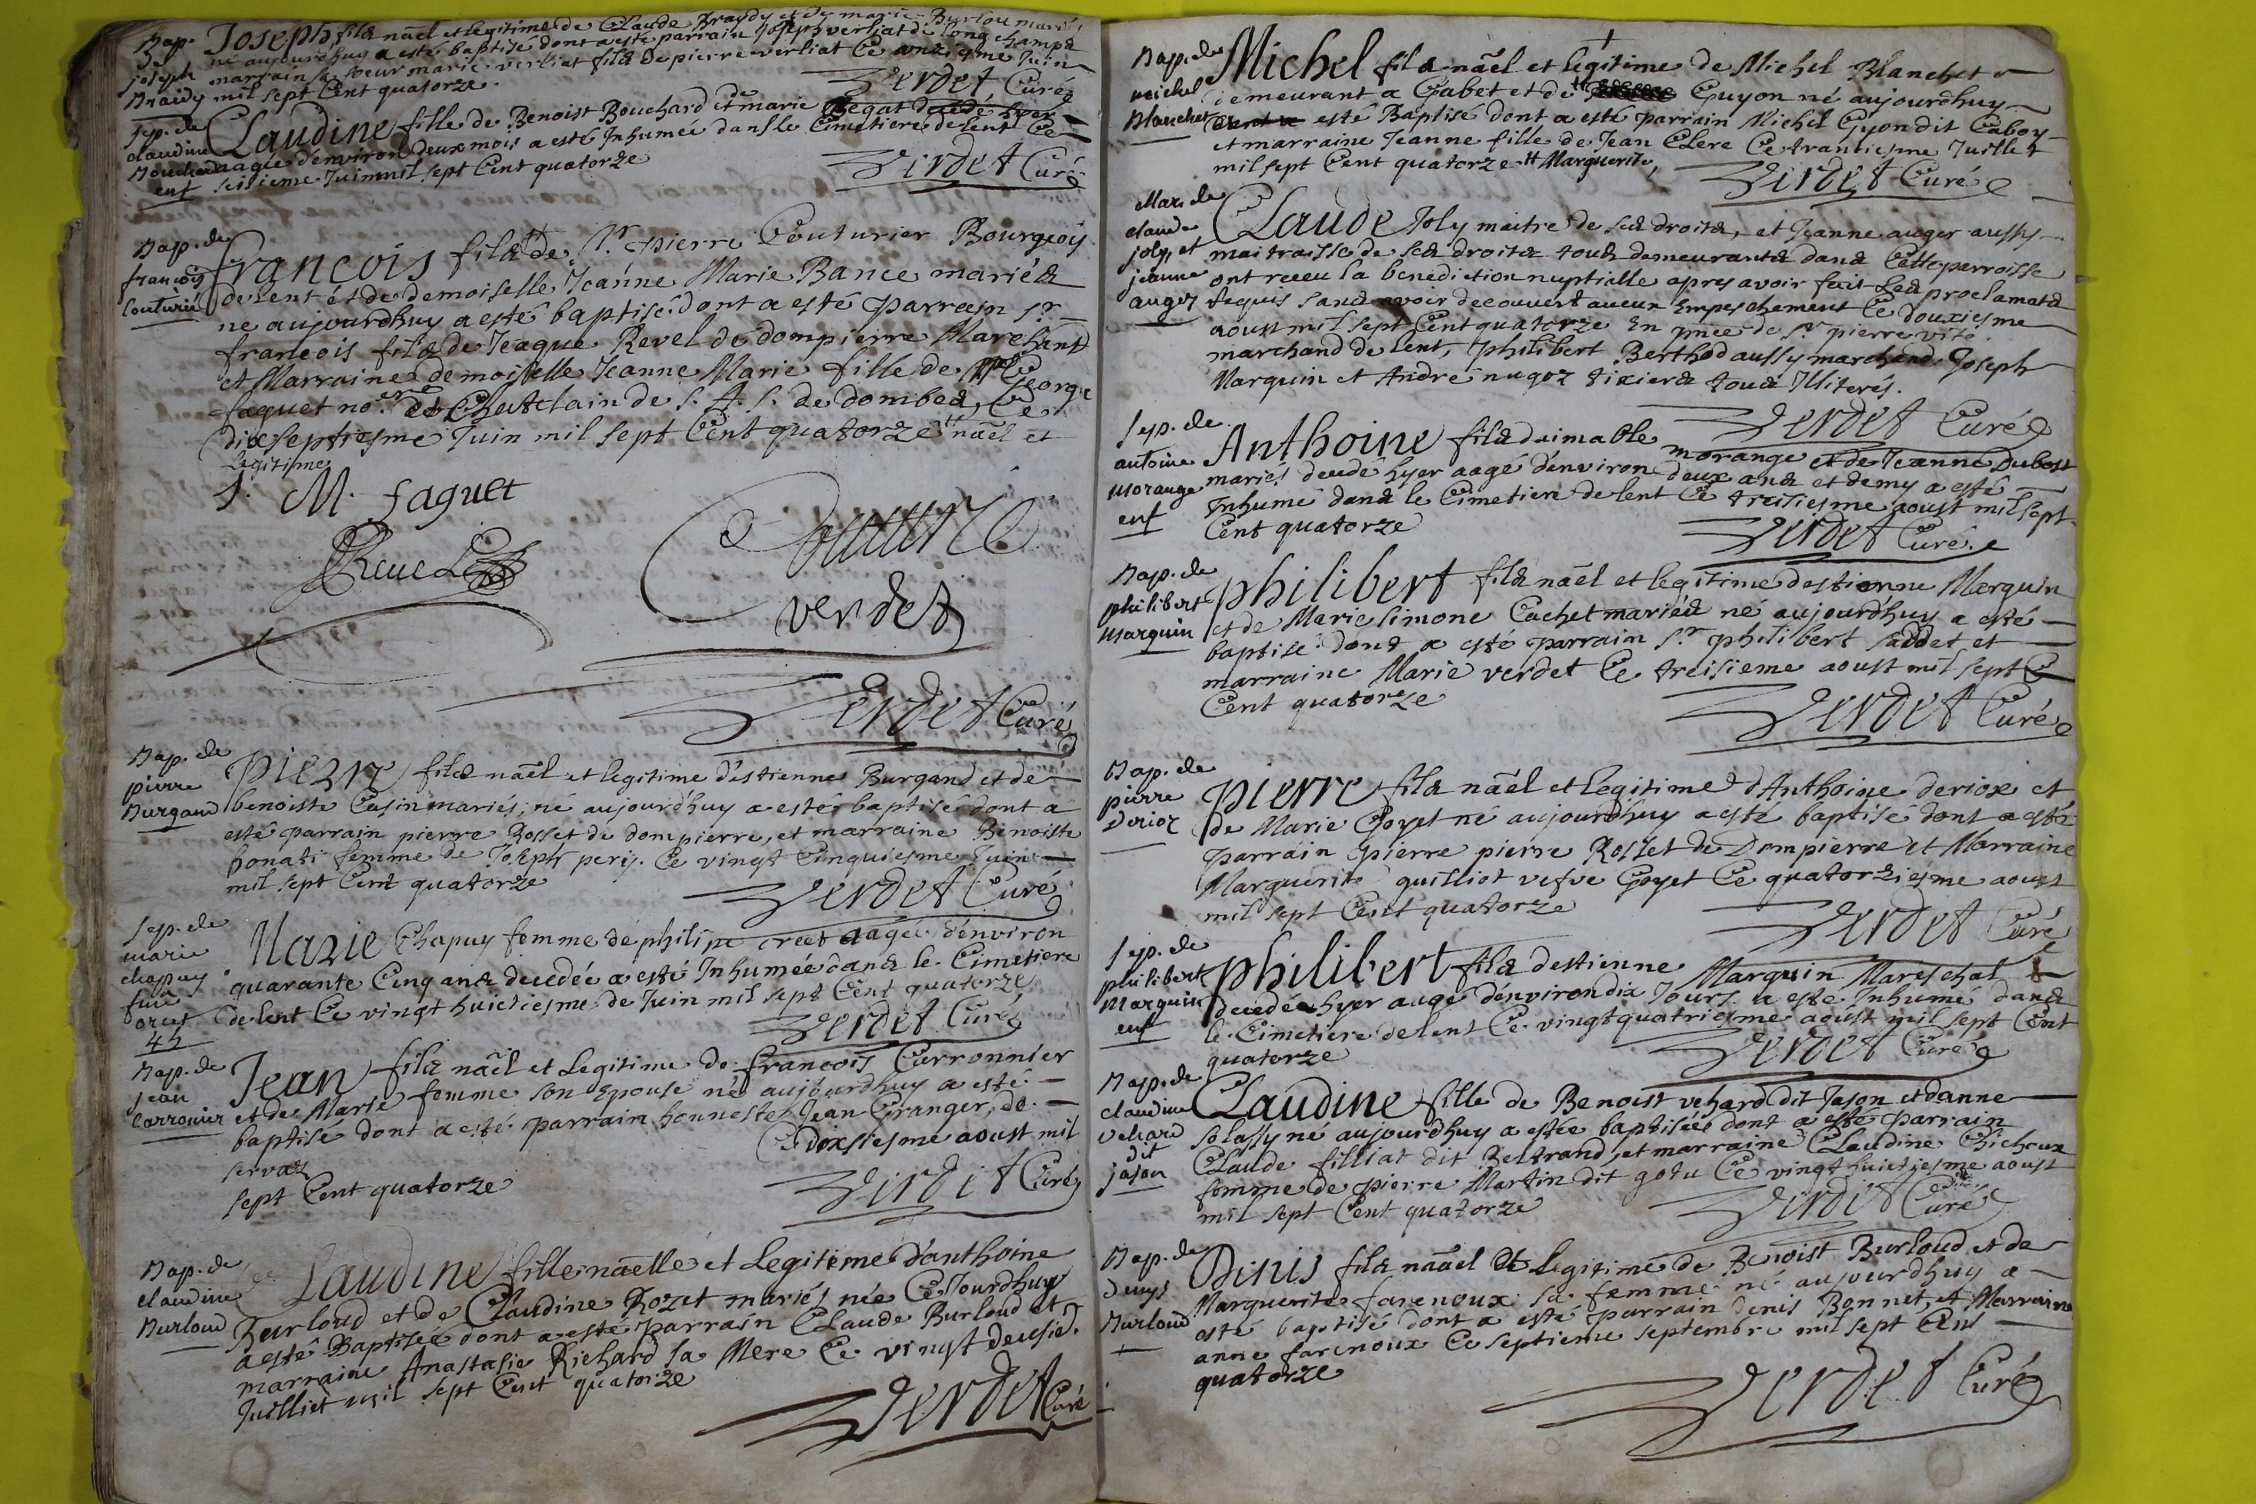 Bap.
joseph
Braidy
Joseph fils nãel et legitime de Claude Braydy et de marie Burlou mariés
né aujourdhuy a esté baptisé dont a esté parrain joseph verliat de longchamps
marraine sa soeur marie verliat fille de pierre verliat Ce onziesme Juin
mil sept Cent quatorze.
Verdet Curé
Sep. de
claudine
Bouchard
enf
Claudine fille de Benoist Bouchard et de marie Begat
aagée d'environ deux mois a esté Inhumée dans le Cimetiere de lent Ce
seisieme Juin mil sept Cent quatorze
Verdet Curé
Bap. de
françois
Couturié
francois fils de Sr. pierre Couturier Bourgeois
de lent et de demoiselle Jeanne Marie Bance mariés
né aujourdhuy a esté baptisé dont a esté parrain Sr.
francois fils de Jeaque Revel de dompierre Marchand
et Marraine demoiselle Jeanne Marie fille de George
faguet no.re et Chastelain de S. A. S. de dombes, Ce
dixseptiesme Juin mil sept Cent quatorze nãel et
legitime
J. M. faguet
Revel
Couturié
verdet
Verdet Curé
Bap. de
pierre
Burgand
pierre fils nãel et legitime d'estienne Burgand et de
benoiste Cusin mariés; né aujourd'huy a esté baptisé dont a
esté parrain pierre Rosset de dompierre, et marraine Benoiste
bonati femme de Joseph perij. Ce vingt Cinquiesme Juin
mil sept Cent quatorze
Verdet Curé
Sep. de
marie
chapuy
feme
orcet
45
Marie Chapuy femme de philipe orcet aagée d'environ
quarante Cinq ans decedée a esté Inhumée dans le Cimetiere
de lent Ce vingt huictiesme de Juin mil sept Cent quatorze
Verdet Curé
Bap. de
jean
Carronier
Jean fils nãel et Legitime de francois Carronnier
et de Marie femme son Epouse né aujourdhuy a esté
baptisé dont a esté parrain honneste Jean Granger, de
servas Ce dixsiesme aoust mil
sept Cent quatorze
Verdet Curé
Bap. de
claudine
Burloud
Claudine fille nãelle et Legitime d'anthoine
Burloud et de Claudine Rozet mariés née Ce Jourdhuy
a esté Baptisée dont a esté parrain Claude Burloud et
marraine Anastasie Richard sa Mere Ce vingt deusie.
Juilliet mil sept Cent quatorze
Verdet Curé
Bap. de
michel
Blanchet
Michel fils nãel et legitime de Michel Blanchet
demeurant a Gabet et de Guyon né aujourdhuy
esté Baptisé dont a esté parrain Michel Guyon dit Caboy
et marraine Jeanne fille de Jean Clere Ce trantiesme Juillet
mil sept Cent quatorze Marguerite,
Verdet Curé
Mar. de
claude
joly, et
jeanne
auger
Claude Joly maitre de ses droits, et Jeanne auger aussy
maitraisse de ses droits tous demeurants dans Cette parroisse
ont receu la benediction nuptialle apres avoir fait Les proclamats
requis sans avoir decouvert aucun Empeschement Ce douziesme
aoust mil sept Cent quatorze En pnce de Sr. pierre vité
marchand de lent, philibert Berthod aussy marchand Joseph
Marquin et André nugoz tixiers tous Illiterés.
Verdet Curé
Sep. de
antoine
morange
enf
Anthoine fils d'aimable morange et de Jeanne Dubost
mariés decedé hyer aagé d'environ deux ans et demy a esté
Inhumé dans le Cimetiere de lent Ce treisiesme aoust mil sept
Cent quatorze
Verdet Curé
Bap. de
philibert
marquin
philibert fils nãel et legitime d'estienne Marquin
et de Marie simone Cachet mariés né aujourd'huy a esté
baptisé dont a esté parrain Sr. philibert saddet et
marraine Marie verdet Ce treisieme aoust mil sept
Cent quatorze
Verdet Curé
Bap. de
pierre
Derioz
pierre fils nãel et legitime d'Anthoine deriox et
de Marie Goyet né aujourdhuy a esté baptisé dont a esté
parrain pierre pierre Rosset de Dompierre et Marraine
Marguerite guilliot vefve Goyet Ce quatorziesme aoust
mil sept Cent quatorze
Verdet Curé
Sep. de
philibert
Marquin
enf
philibert fils d'estienne Marquin Mareschal
decedé hyer aagé d'environ dix Jours a esté Inhumé dans
le Cimetiere de lent Ce vingtquatriesme aoust mil sept Cent
quatorze
Verdet Curé
Bap. de
claudine
vehard
dit
jason
Claudine fille de Benoist vehard dit Jason et d'anne
solassy né aujourdhuy a estée baptisée dont a esté parrain
Claude filliat dit Bertrand, et marraine Claudine Chichoux
femme de pierre Martin dit gotu Ce vingt huictiesme aoust
mil sept Cent quatorze
Verdet Curé
Bap. de
Denys
Burloud
Denis fils nãel et legitime de Benoist Burloud et de
Marguerite farenoux sa femme né aujourdhuy a
esté baptisé dont a esté parrain denis Bonnet, et Marraine
anne farenoux Ce septieme septembre mil sept Cens
quatorze
Verdet Curé